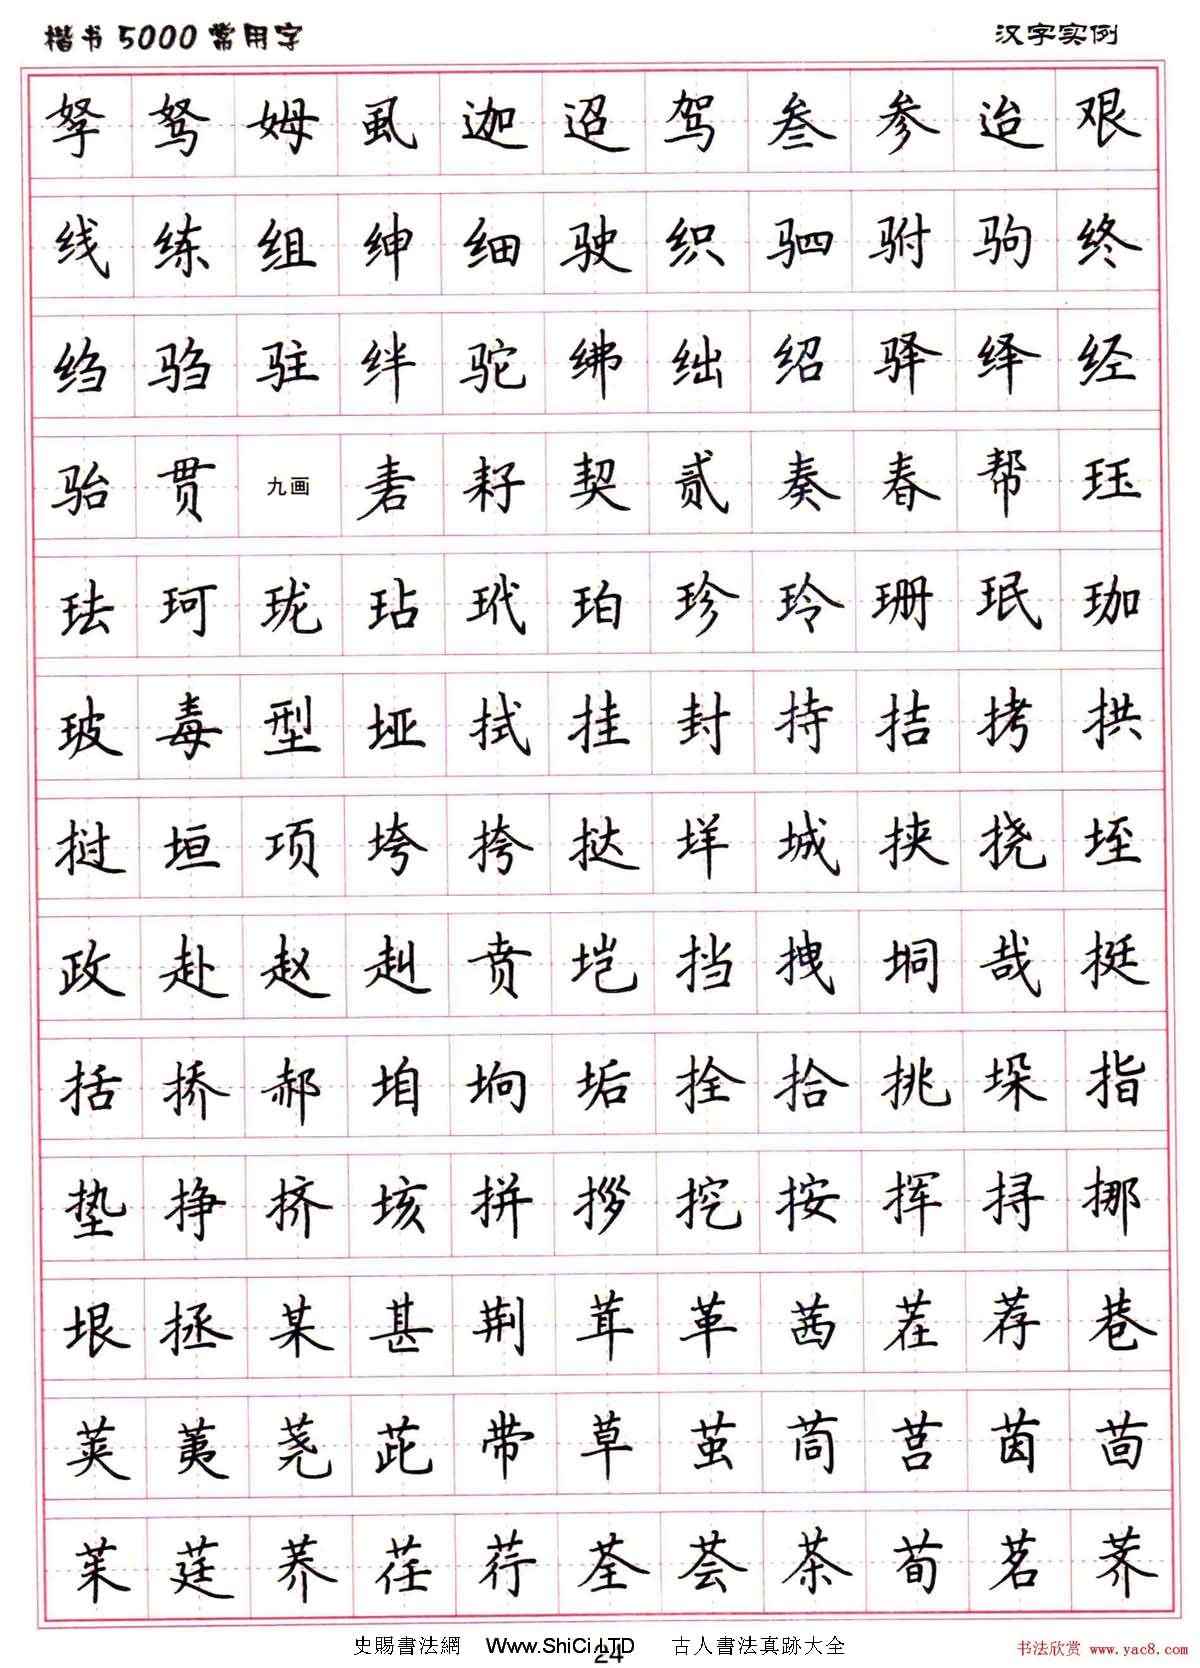 楷书5000常用字 汉字实例
孥 驽 姆 虱 迦 迢 驾 叁 参 迨 艰
线 练 组 绅 细 驶 织 驷 驸 驹 终
绉 驺 驻 绊 驼 绋 绌 绍 驿 绎 经
骀 贯 九画 砉 耔 契 贰 奏 春 帮 珏
珐 珂 珑 玷 玳 珀 珍 玲 珊 珉 珈
玻 毒 型 垭 拭 挂 封 持 拮 拷 拱
挝 垣 项 垮 挎 挞 垟 城 挟 挠 垤
政 赴 赵 赳 贲 垲 挡 拽 垌 哉 挺
括 挢 郝 垍 垧 垢 拴 拾 挑 垛 指
垫 挣 挤 垓 拼 拶 挖 按 挥 挦 挪
垠 拯 某 甚 荆 茸 革 茜 茬 荐 巷
荚 荑 荛 茈 带 草 茧 茼 莒 茵 茴
茱 莛 荞 荏 荇 荃 荟 茶 荀 茗 荠
史賜書法網 Www.ShiCi.LTD 古人書法真跡大全
24
书法欣赏 www.yac8.com